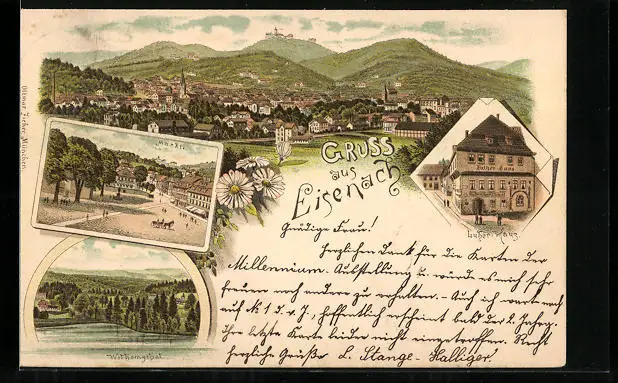 Ottmar Zieher, München.
Markt.
Gruss
aus
Eisenach
Luther-Haus
Luther-Haus.
Wilhelmsthal.
Gnädige Frau!
Herzlichen Dank für die Karten der
Millennium-Ausstellung u. würde es mich sehr
freuen noch andere zu erhalten. - Auch ich warte noch
auf № 1 d. J., hoffentlich erscheint bald der 2. Jahrg.
Ihre letzte Karte leider nicht eingetroffen. Recht
herzliche Grüße L. Stange-Halliger.